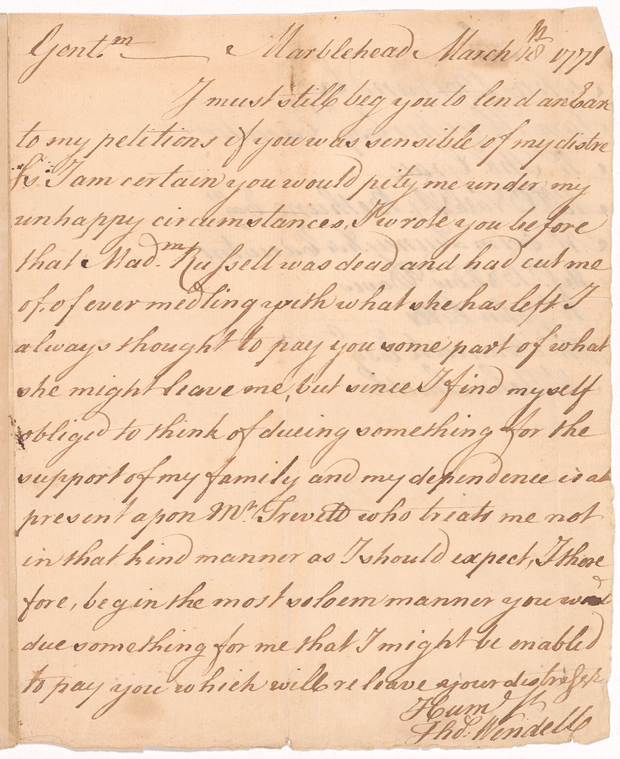 Gent.m Marblehead March 18th 1771
I must still beg you to lend an Ear
to my petitions if you was sensible of my distre
ss. I am certain you would pity me under my
unhappy circumstances, I wrote you before
that Mad.m Russell was dead and had cut me
of, of ever medling with what she has left I
always thought to pay you some part of what
she might leave me, but since I find myself
obliged to think of dueing something for the
support of my family and my dependence is at
present apon Mr Trevett who treats me not
in that kind manner as I should expect, I there
fore, beg in the most soloem manner you would
due something for me that I might be enabled
to pay you which will releave your distressed
Hum.e St
Tho.s Wendell